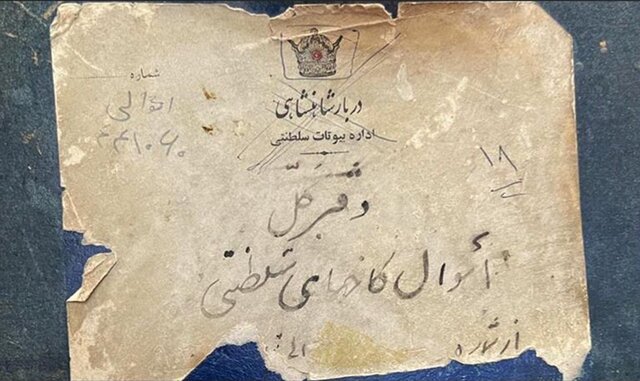 دربار شاهنشاهی
اداره بیوتات سلطنتی
شماره
اموالی
۱۸
دفتر کل
اموال کاخهای سلطنتی
از شماره الی